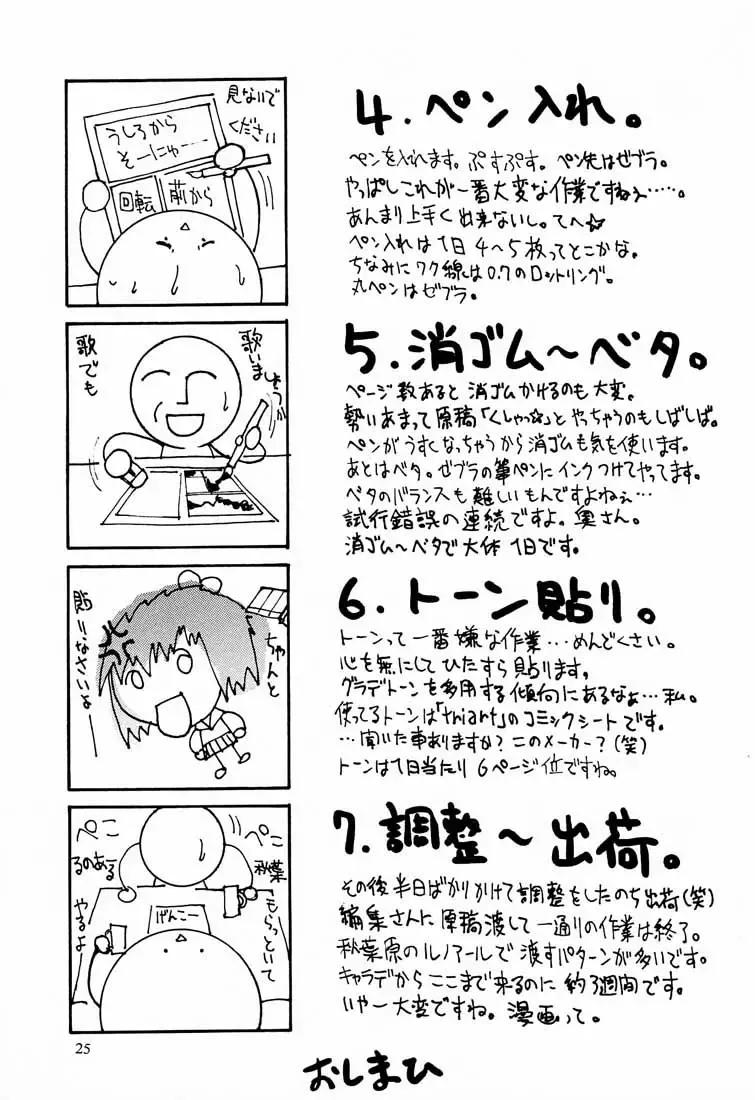 4.ペン入れ。
ペンを入れます。ぷすぷす。ペン先はゼブラ。
やっぱしこれが一番大変な作業ですねぇ……。
あんまり上手く出来ないし。てへ☆
ペン入れは1日4〜5枚ってとこかな。
ちなみにワク線は0.7のロットリング。
丸ペンはゼブラ。
見ないで
ください
うしろから
そーにゅー……
回転
前から
5.消ゴム〜ベタ。
ページ数あると消ゴムかけるのも大変。
勢いあまって原稿「くしゃっ☆」とやっちゃうのもしばしば。
ペンがうすくなっちゃうから消ゴムも気を使います。
あとはベタ。ゼブラの筆ペンにインクつけてやってます。
ベタのバランスも難しいもんですよねぇ…
試行錯誤の連続ですよ。奥さん。
消ゴム〜ベタで大体1日です。
歌でも
歌いましょう
6.トーン貼り。
トーンって一番嫌な作業…めんどくさい。
心を無にしてひたすら貼ります。
グラデトーンを多用する傾向にあるなぁ…私。
使ってるトーンは「triart」のコミックシートです。
…聞いた事ありますか?このメーカー?(笑)
トーンは1日当たり6ページ位ですね。
ちゃんと
貼りなさいよ――
7.調整〜出荷。
その後半日ばかりかけて調整をしたのち出荷(笑)
編集さんに原稿渡して一通りの作業は終了。
秋葉原のルノアールで渡すパターンが多いです。
キャラデからここまで来るのに約3週間です。
いやー大変ですね。漫画って。
ぺこ
ぺこ
るのあーる
秋葉
げんこー
もらっといて
やるよ
25
おしまひ